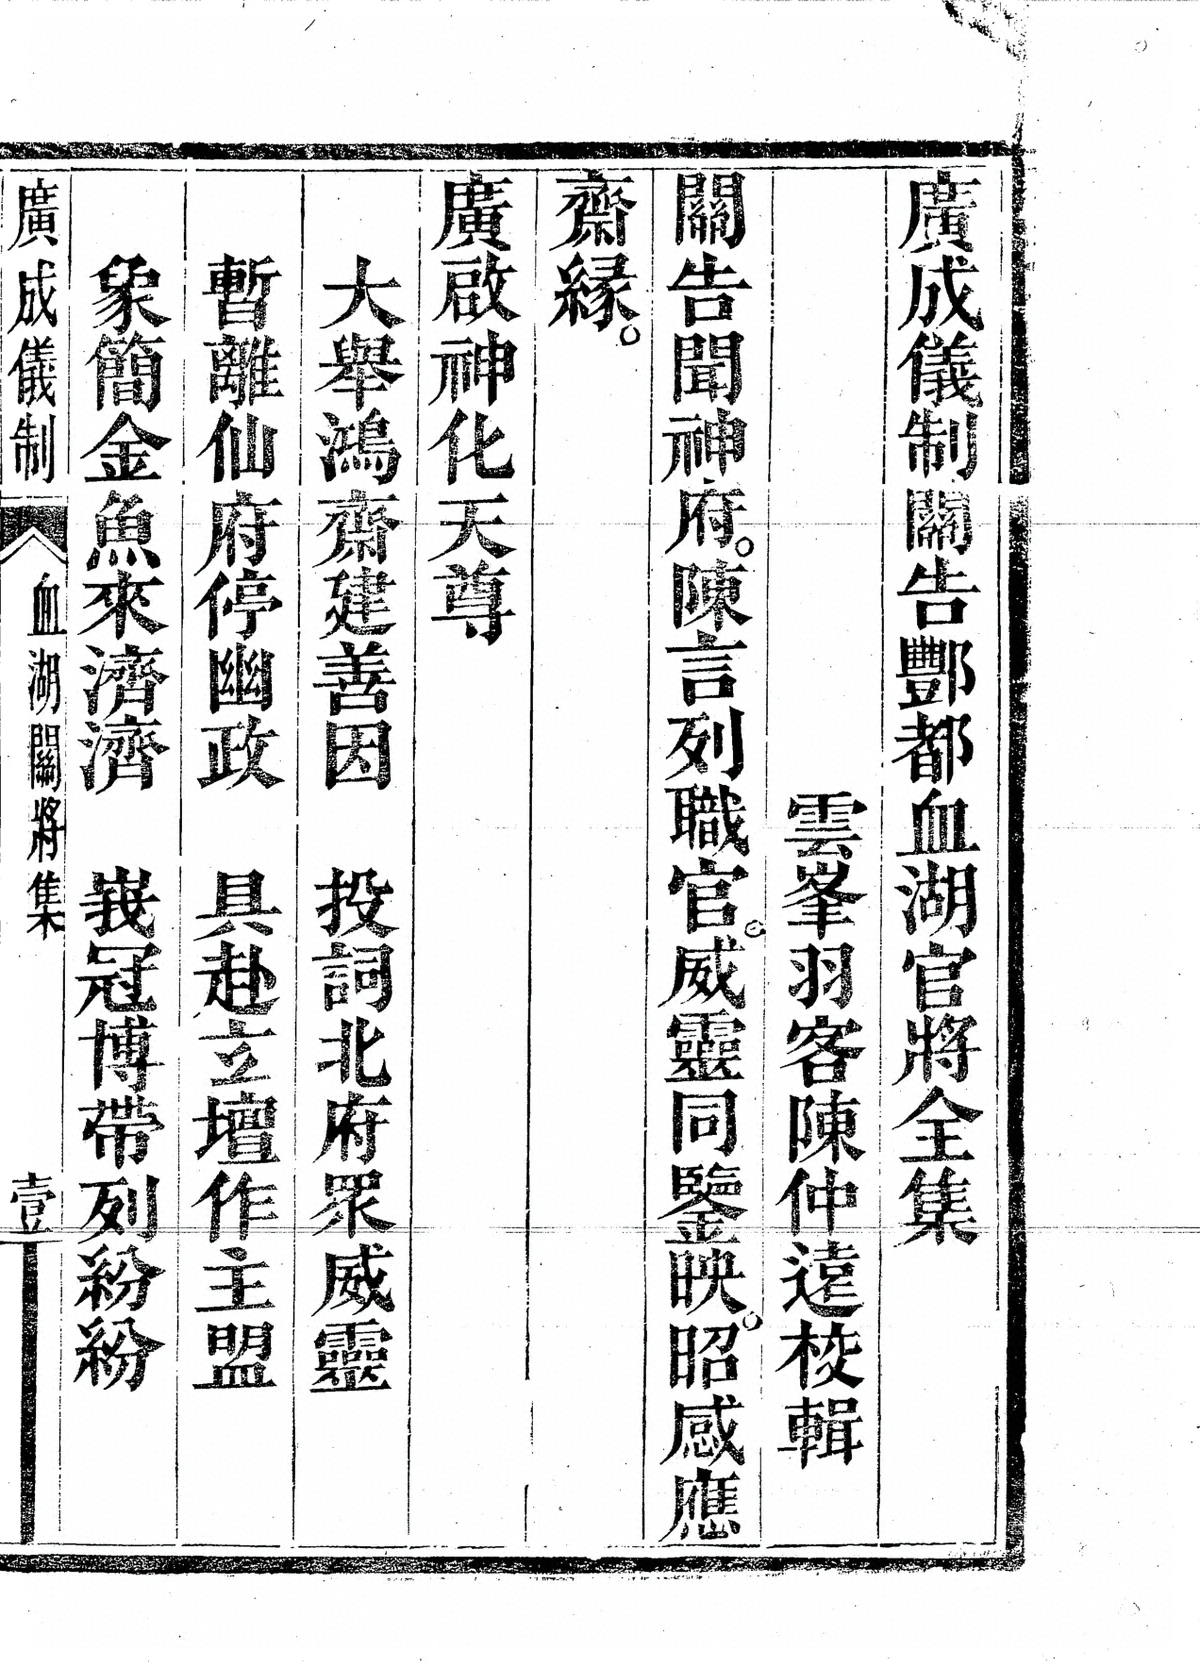 廣成儀制關告酆都血湖官將全集
雲峯羽客陳仲遠校輯
關告聞神府。陳言列職官。威靈同鑒映。昭感應
齋緣。
廣啟神化天尊
大舉鴻齋建善因　投詞北府眾威靈
暫離仙府停幽政　具赴立壇作主盟
象簡金魚來濟濟　峩冠博帶列紛紛
廣成儀制　血湖關將集　壹